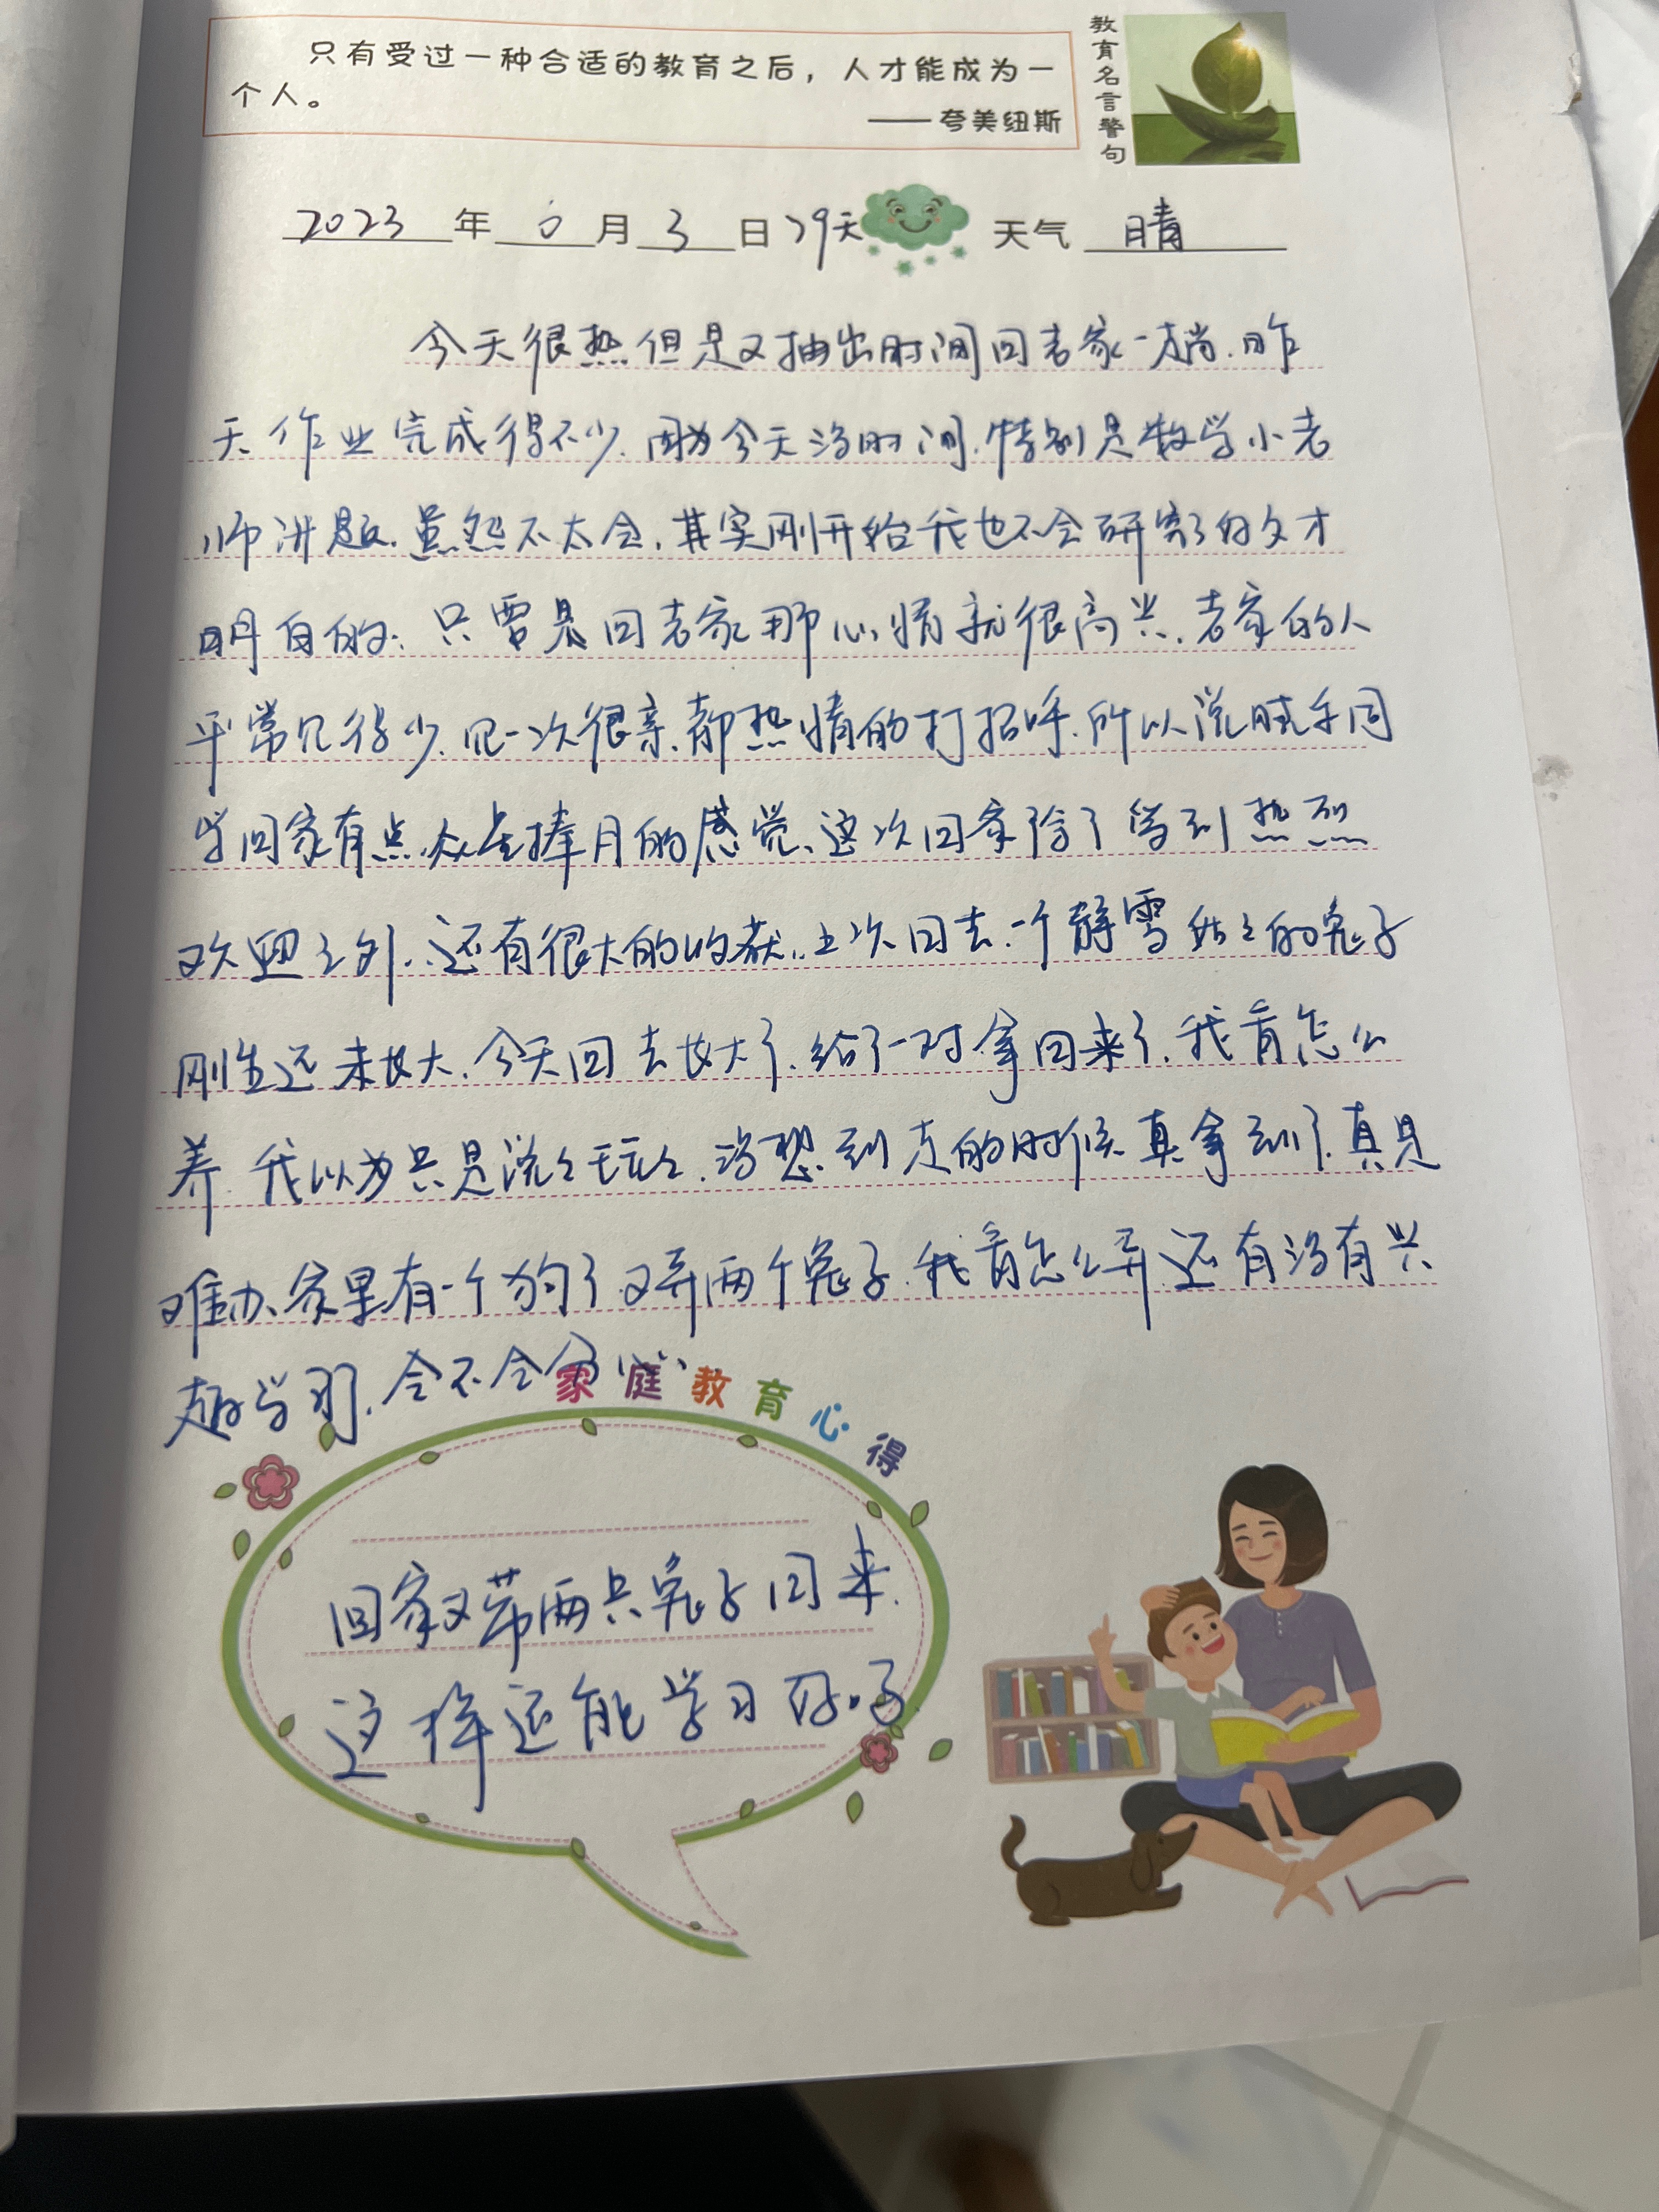 只有受过一种合适的教育之后，人才能成为一
个人。
——夸美纽斯
教育名言警句
2023 年 月 3 日 29天 天气 晴
今天很热.但是又抽出时间回老家一趟.昨
天作业完成得不少.因为今天没时间.特别是数学小老
师讲题.虽然不太会.其实刚开始我也不会研究了好久才
明白的.只要是回老家那心情就很高兴.老家的人
平常见得少.见一次很亲.都热情的打招呼.所以说同
学回家有点众星捧月的感觉、这次回家除了得到热烈
欢迎之外.还有很大的收获..上次回去.一个静雪姑姑的兔子
刚生还未长大.今天回去长大了.给了一对.拿回来了.我看怎么
养.我以为只是说说玩玩.没想到走的时候真拿到了.真是
难办、家里有一个狗了又弄两个兔子.我看怎么弄.还有没有兴
趣学习.会不会分心.
家庭教育心得
回家又带两只兔子回来.
这样还能学习好吗